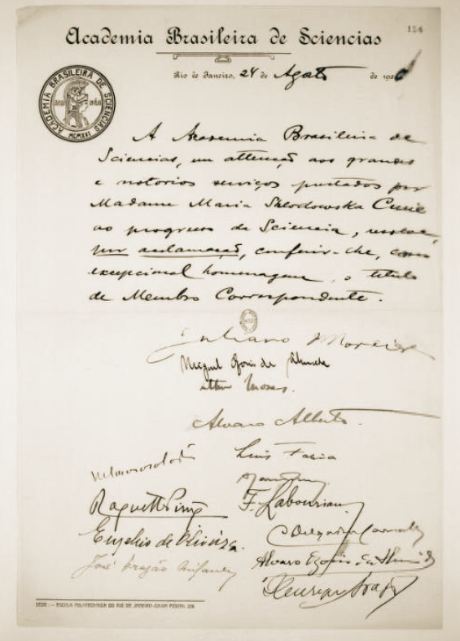 124
Academia Brasileira de Sciencias
Rio de Janeiro, 24 de Agosto de 192
ACADEMIA BRASILEIRA DE SCIENCIAS
MCMXVI
A Academia Brasileira de
Sciencias, em attenção aos grandes
e notorios serviços prestados por
Madame Maria Sklodowska Curie
ao progresso da Sciencia, resolve,
por acclamação, conferir-lhe, como
excepcional homenagem, o titulo
de Membro Correspondente.
Juliano Moreira
Miguel Ozorio de Almeida
Arthur Moses.
Alvaro Alberto.
Luis Faria
Roquette Pinto
F. Labouriau
Euzebio de Oliveira.
Alvaro Ozorio de Almeida
José
Henrique Aragão
SÉDE: ESCOLA POLYTECHNICA DO RIO DE JANEIRO CAIXA POSTAL